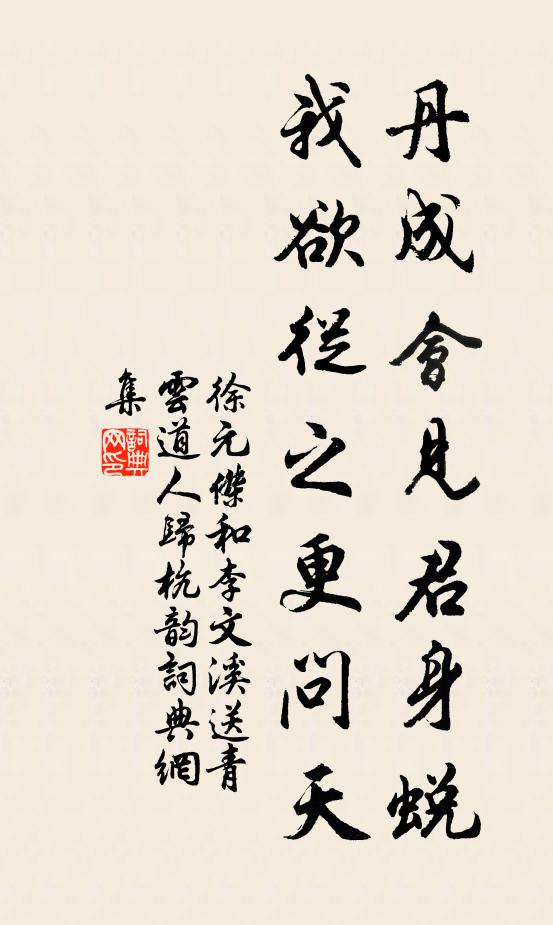 丹成會見君身蛻
我欲從之更問天
徐元傑和李文溪送青
雲道人歸杭韵詞典網
集
詞典网印